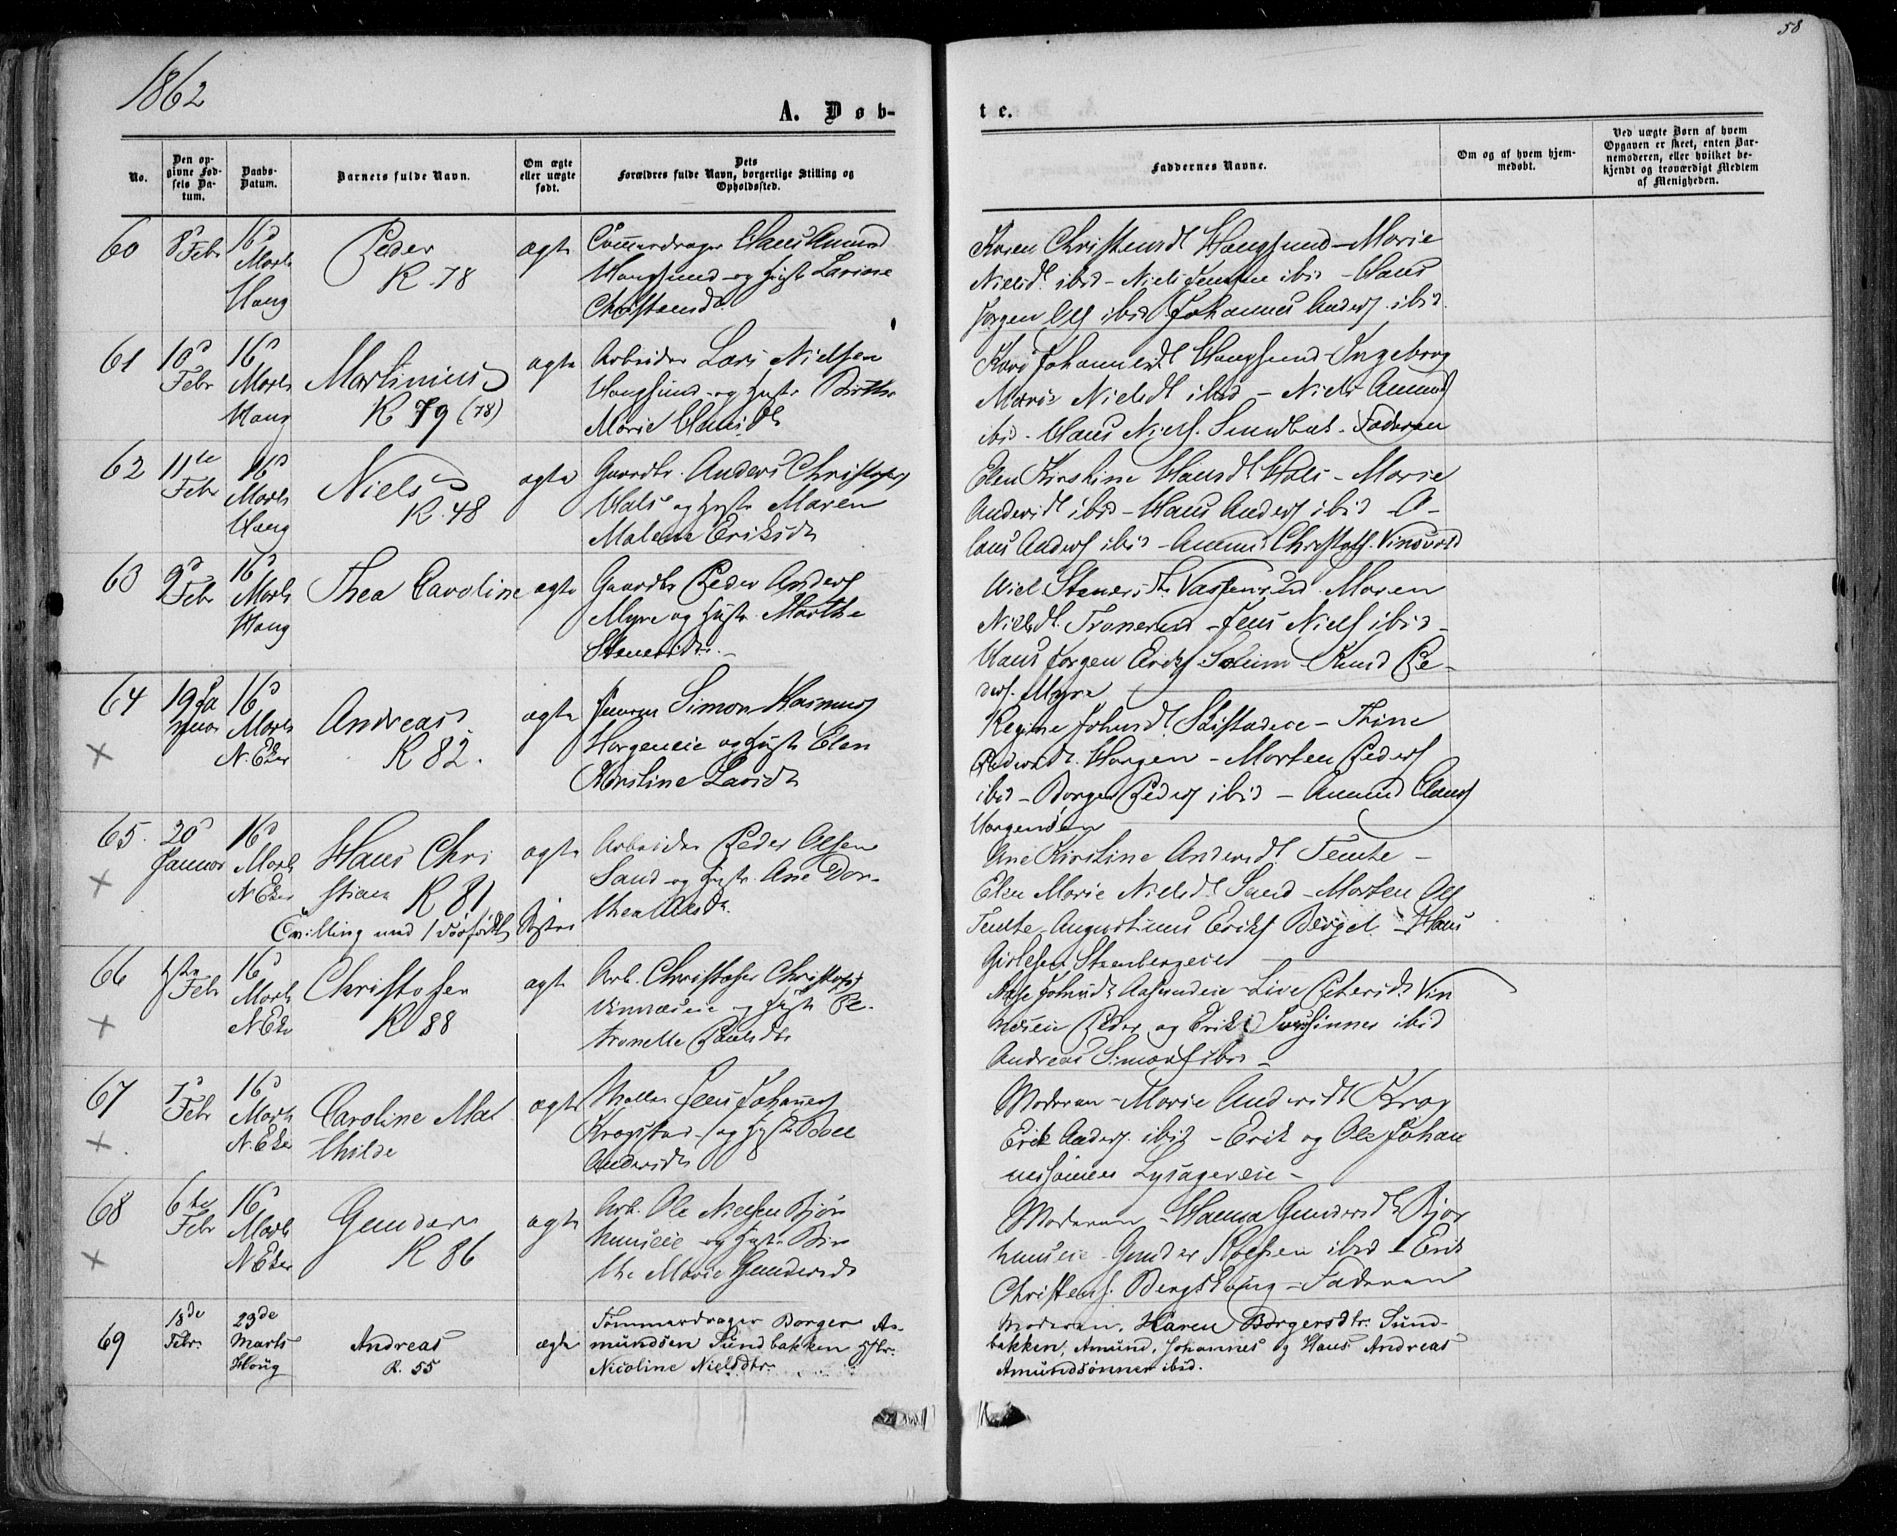 1862
58
A. Døb-
te.
No.
Den op-
givne Fød-
sels Da-
tum.
Daabs-
Datum.
Barnets fulde Navn.
Om ægte
eller uægte
født.
Dets
Forældres fulde Navn, borgerlige Stilling og
Opholdssted.
Faddernes Navne.
Om og af hvem hjem-
medøbt.
Ved uægte Børn af hvem
Opgaven er skeet, enten Bar-
nemoderen, eller hvilket be-
kjendt og troværdigt Medlem
af Menigheden.
60
8d Febr
16d
Marts
Houg
Peder
K. 78
ægte
Hans Amund
Hougsund og Hustr Lavine
Christensd.
Karen Christensdt Hougsund - Marie
Nielsdt ibid - Niels Jensen ibid - Hans
Jørgen Ols ibid Johannes Anders ibid.
61
10d
Febr
16d
Marts
Houg
Martinius
K 79 (78)
ægte
Arbeider Lars Nielsen
Hougsund og Hustr Birthe
Marie Hansdt
Kari Johannesdt Hougsund - Ingeborg
Marie Nielsdt ibid - Niels Amund
ibid. Hans Niels. Sundbak. Faderen
62
11te
Febr
16d
Marts
Houg
Niels
K. 48
ægte
Gaardbr. Anders Christofers
Hals og Hustr Maren
Malene Eriksdt
Elen Kirstine Hansdt Hals - Marie
Andersdt ibid - Hans Anders ibid - O-
laus Anders ibid - Amund Christofs.
63
9d
Febr
16d
Marts
Houg
Thea Caroline
ægte
Gaardbr Peder Anders
Myre og Hustr. Marthe
Steenersdtr. -
Maren
Nielsdt. Tranerud - Jens Niels ibid -
Hans Jørgen Eriks Solum - Knud Pe-
ders. Myre
64
19 Ja
nuar
16d
Marts
N. Eker
Andreas
K 82.
ægte
Simon Rasmus
Horgeneie og Hustr Elen
Kirstine Larsdt
Regine Johnsdt - Thine
Pedersdt. Horgen - Morten Peders
ibid - Borger Peders ibid - Amund Claus
Horgensen
65.
20d
Januar
16d
Marts
N Eker
Hans Chri
stian
K 81
Tvilling med 1 dødfødt Søster
ægte
Arbeider Peder Olsen
Sand og Hustr. Ane Dor-
thea Olsdt.
Ane Kirstine Andersdt. Temte -
Elen Marie Nielsdt Sand - Morten Ols
Temte - Augustinus Eriks - Hans
Steenbergeie
66
Febr
16d
Marts
N Eker
Christofer
K 88
ægte
Arb. Christofer Christofs
og Hustr Pe-
tronelle Paulsdtr
Johnsdt - Live Petersdt Vin
Peder og Erik ibid
Andreas Simons ibid -
67
1d
Febr
16d
Marts
N. Eker
Caroline Mat
hilde
ægte
Møller Jens Johannes
Krogstad - og Hustr Boel
Andersdt
Moderen - Marie Andersdt Krog
Erik Anders. ibid - Erik og Ole Johan
nessønner Lysagereie -
68
6te
Febr
16d
Marts
N Eker
Gunder
K 86
ægte
Arb. Ole Nielsen Bjør
nuseie og Hustr Bir
the Marie Gundersdt
Moderen - Hanna Gundersdt Bjør
nuseie - Gunder ibid - Erik
Christens. Bergshoug - Faderen
69
18de
Febr.
23de
Marts
Houg
Andreas
K. 55
ægte
Tømmerdrager Borger A-
mundsen Sundbakken Hstr.
Nicoline Nielsdtr.
Moderen, Karen Borgersdtr. Sund-
bakken, Amund, Johannes og Hans Andreas
Amundssønner ibid.